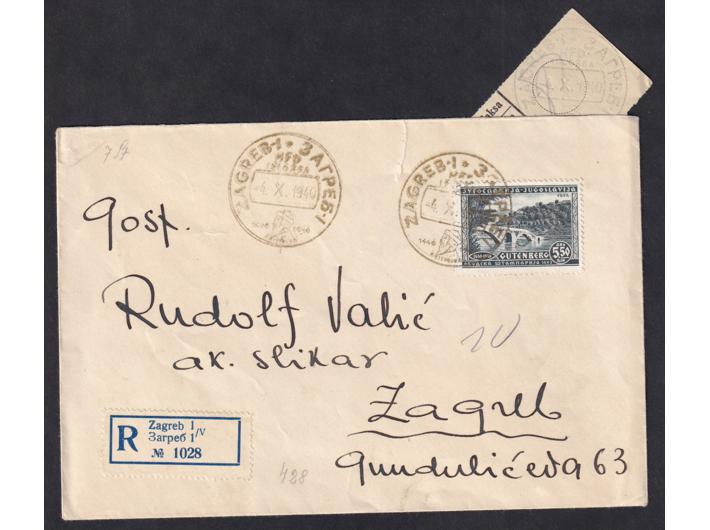 ZAGREB·1 * ЗАГРЕБ·1
-4. X. 1940
ZAGREB·1 * ЗАГРЕБ
-4. X.
ЗАГРЕБ
X. 1940
1446
1446
ЈУГОСЛАВИЈА·JUGOSLAVIJA
GUTENBERG
5.50
7.ЗАГРЕБ
Gosp.
Rudolf Valić
ak. slikar
Zagreb
Gundulićeva 63
R
Zagreb 1
Загреб 1/V
№ 1028
428